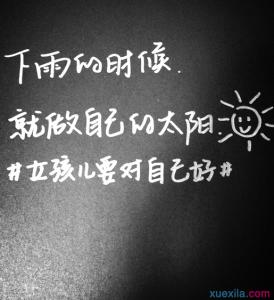 下雨的时候.
就做自己的太阳.
#女孩儿要对自己好#
xuexila.com